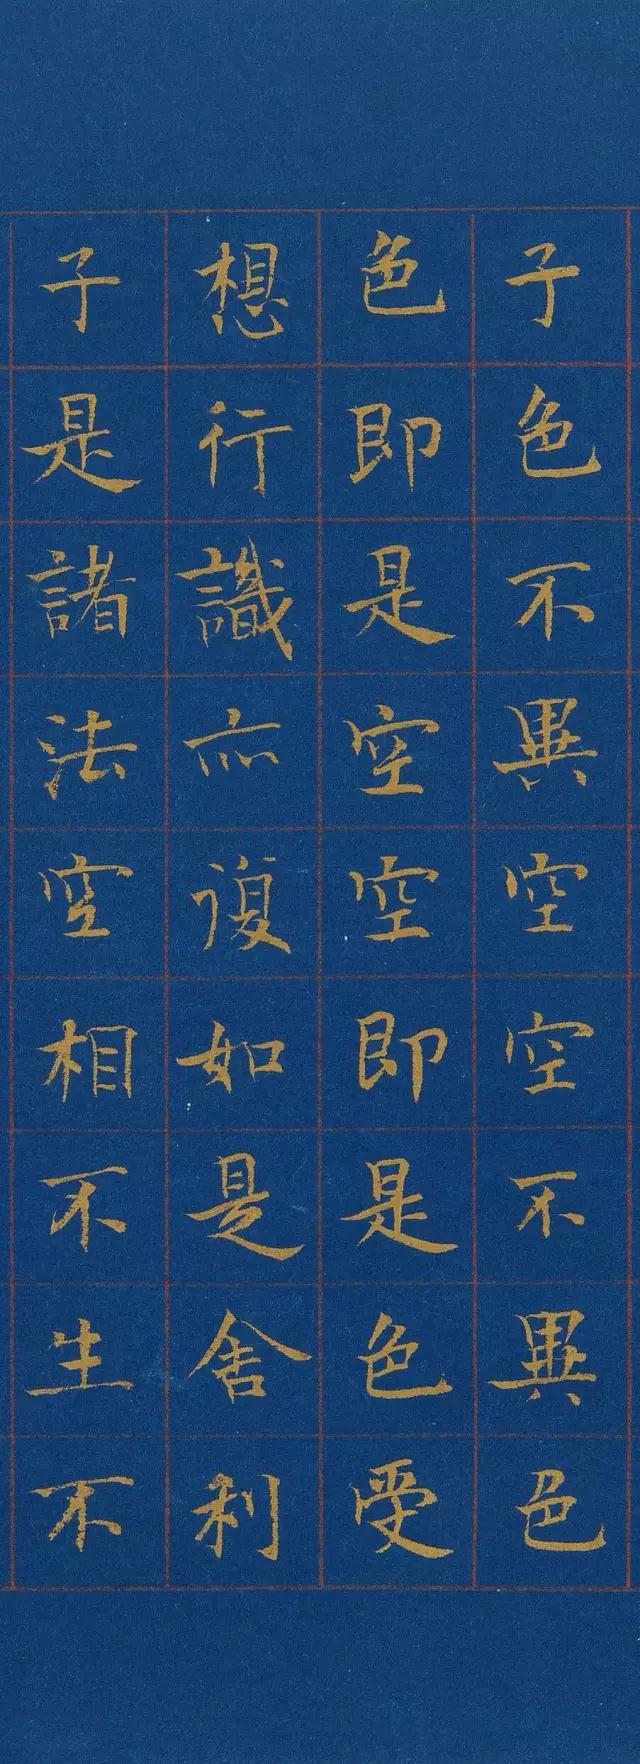 子色不異空空不異色
色即是空空即是色受
想行識亦復如是舍利
子是諸法空相不生不